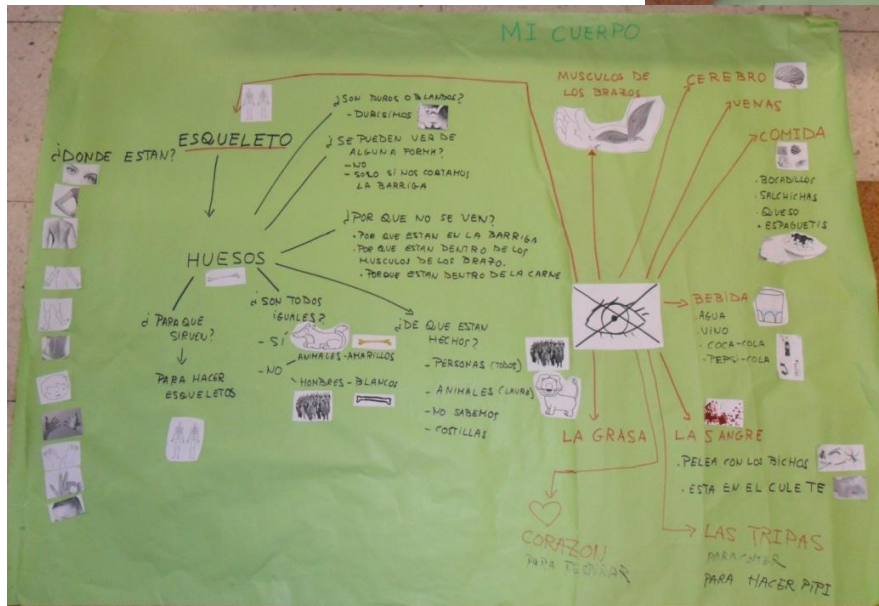 MI CUERPO
¿DONDE ESTAN?
ESQUELETO
¿SON DUROS O BLANDOS?
- DURISIMOS
¿SE PUEDEN VER DE
ALGUNA FORMA?
- NO
- SOLO SI NOS CORTAMOS
LA BARRIGA
HUESOS
¿POR QUE NO SE VEN?
· POR QUE ESTAN EN LA BARRIGA
· POR QUE ESTAN DENTRO DE LOS
MUSCULOS DE LOS BRAZO.
· PORQUE ESTAN DENTRO DE LA CARNE
¿PARA QUE
SIRVEN?
PARA HACER
ESQUELETOS
¿SON TODOS
iGUALES?
- SÍ
- NO
ANIMALES - AMARILLOS
HOMBRES - BLANCOS
¿DE QUE ESTAN
HECHOS?
- PERSONAS (TODOS)
- ANIMALES (LAURA)
- NO SABEMOS
- COSTILLAS
MUSCULOS DE
LOS BRAZOS
CEREBRO
VENAS
COMIDA
· BOCADILLOS
· SALCHICHAS
· QUESO
· ESPAGUETIS
BEBIDA
· AGUA
· VINO
· COCA-COLA
· PEPSI-COLA
LA GRASA
LA SANGRE
· PELEA CON LOS BICHOS
· ESTA EN EL CULETE
CORAZON
PARA
LAS TRIPAS
PARA COMER
PARA HACER PIPI